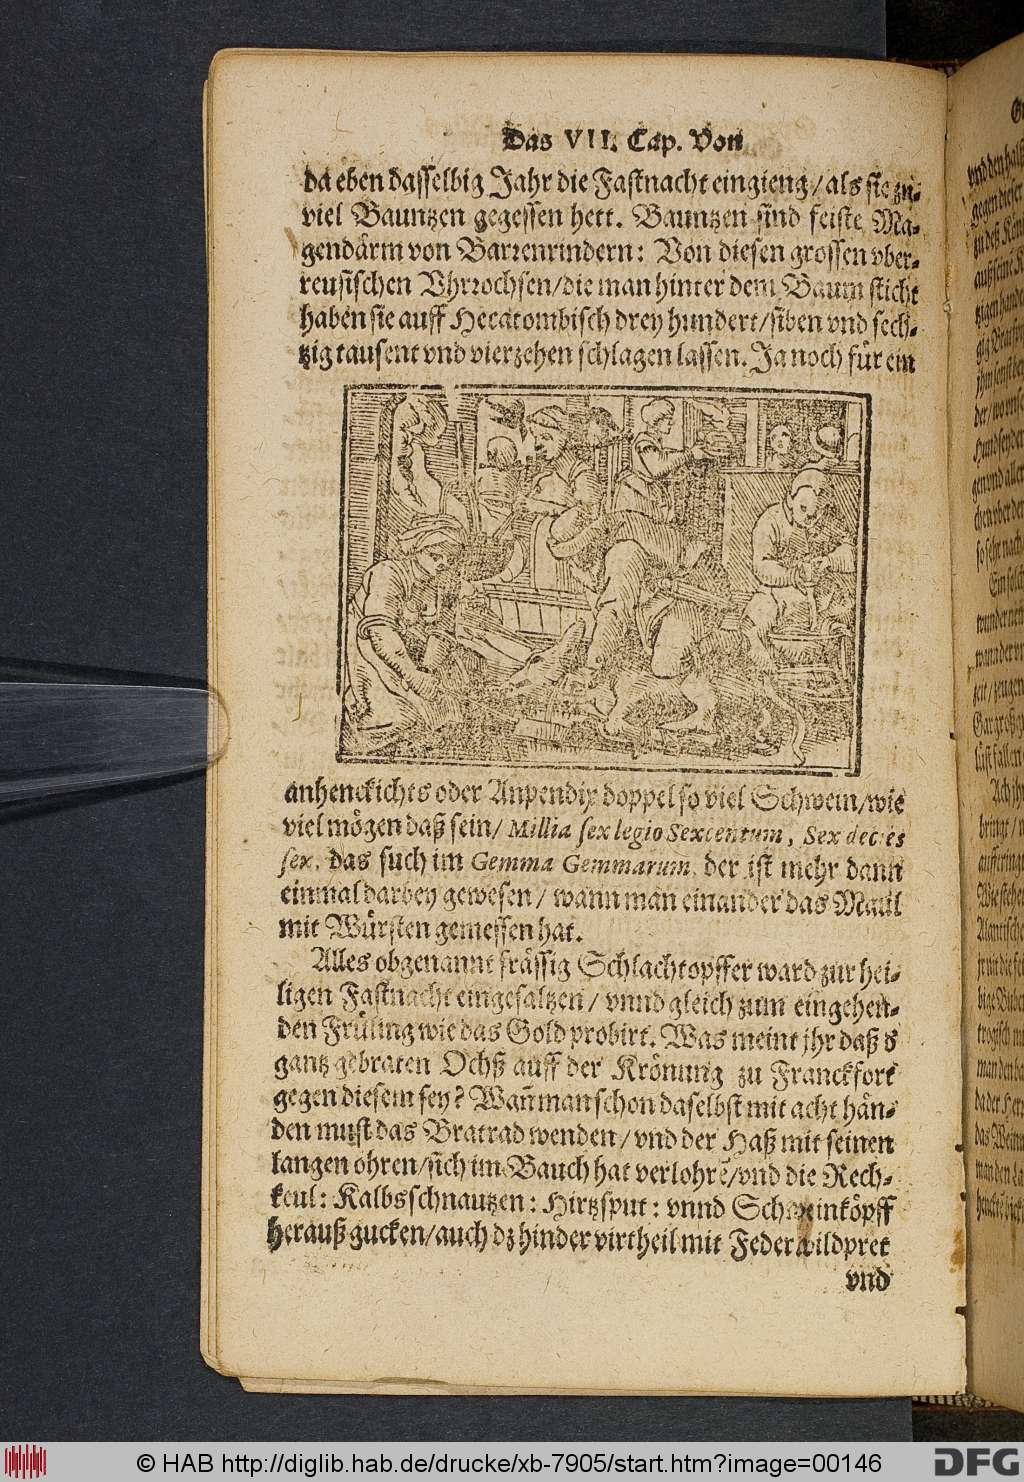 Das VII. Cap. Von
da eben dasselbig Jahr die Fastnacht eingieng/als sie zu-
viel Bauntzen gegessen hett. Bauntzen sind feiste Ma-
gendärm von Barrenrindern: Von diesen grossen vber-
reusischen Vhrrochsen/die man hinter dem Baum sticht
haben sie auff Hecatombisch drey hundert/siben vnd sech-
tzig tausent vnd vierzehen schlagen lassen. Ja noch für ein
anhenckichts oder Anpendix doppel so viel Schwein/wie
viel mögen daß sein/ Millia sex legio Sexcentum, Sex decies
sex, das such im Gemma Gemmarum, der ist mehr dann
einmal darbey gewesen/ wann man einander das Maul
mit Würsten gemessen hat.
Alles obgenannt frässig Schlachtopffer ward zur hei-
ligen Fastnacht eingesaltzen/ vnnd gleich zum eingehen-
den Früling wie das Gold probirt. Was meint jhr daß d
gantz gebraten Ochß auff der Krönung zu Franckfort
gegen diesem sey? Wañ man schon daselbst mit acht hän-
den must das Bratrad wenden/ vnd der Haß mit seinen
langen ohren/sich im Bauch hat verlohrē/vnd die Rech-
keul: Kalbsschnautzen: Hirtzsput: vnnd Schweinköpff
herauß gucken/auch dz hinder virtheil mit Federwildpret
vnd
© HAB http://diglib.hab.de/drucke/xb-7905/start.htm?image=00146
DFG